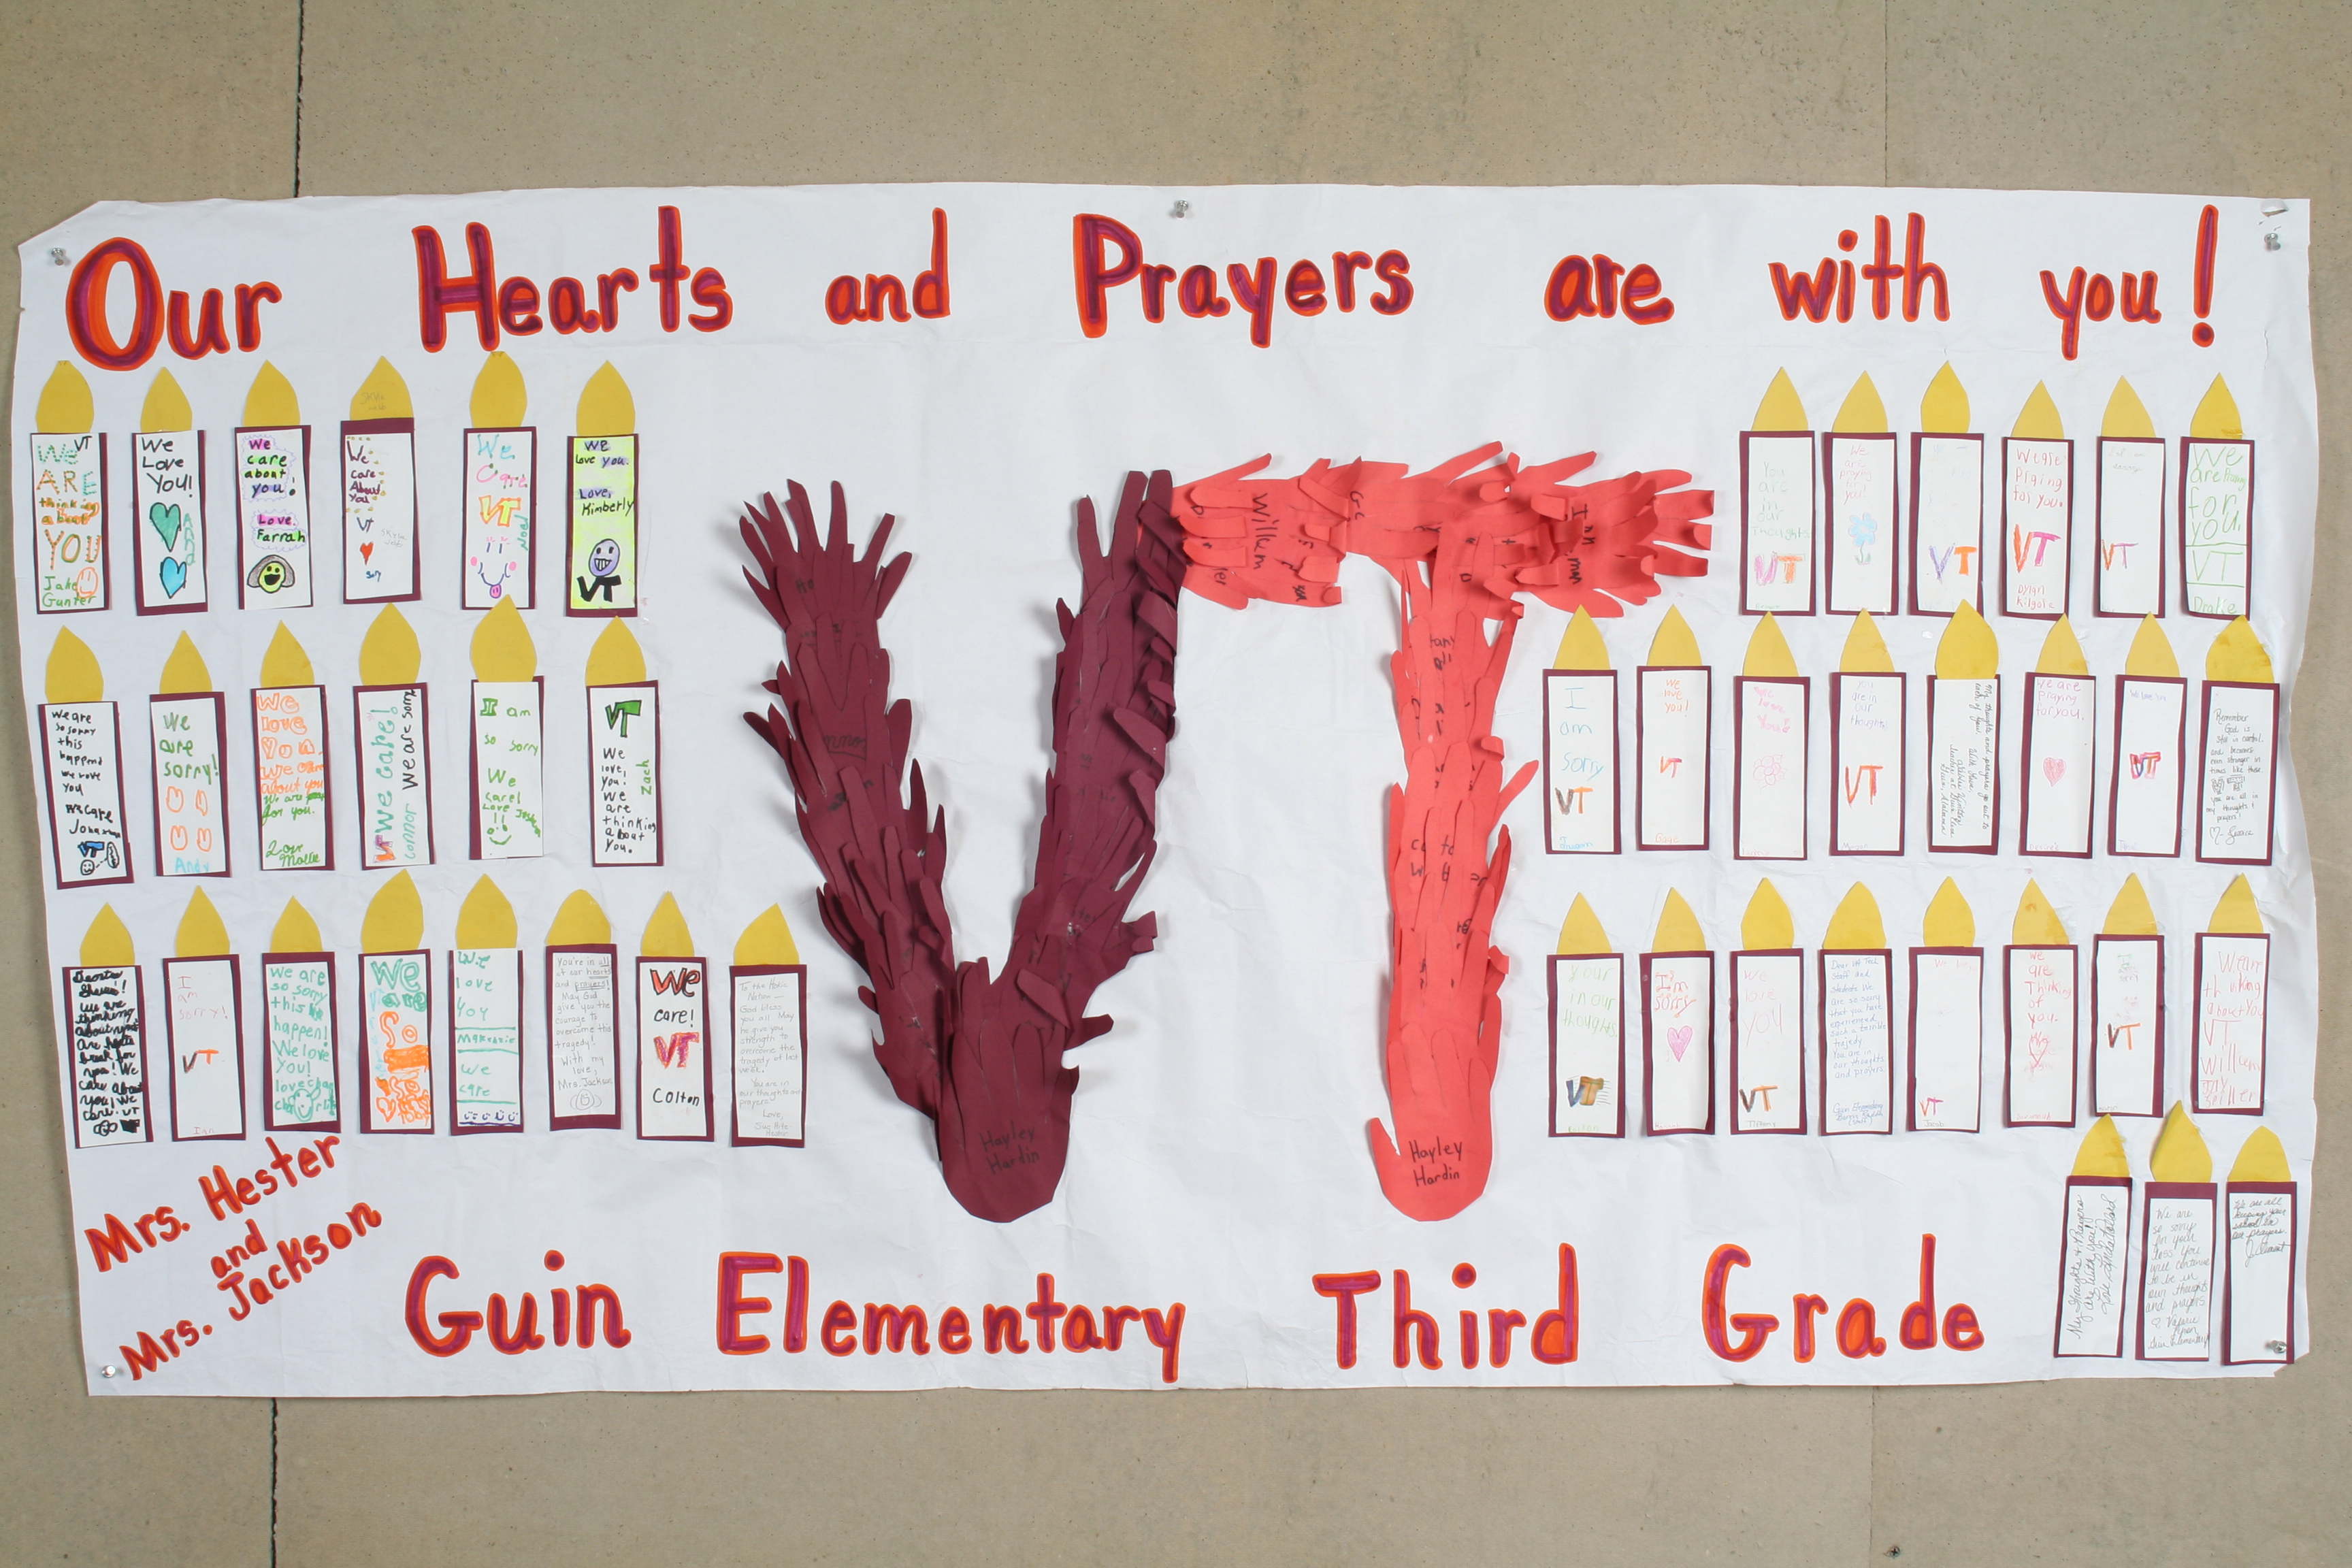 Our Hearts and Prayers are with you!
We VT
ARE
thinking
about
YOU
Jake
Ganter
We
Love
You!
We
care
about
you!
Love,
Farrah
We
care
About
you
VT
We
Care
VT
Noel
We
love you.
Love,
Kimberly
VT
You
are
in
our
thoughts
VT
We
are
praying
for
you!
VT
We are
Praing
for you.
VT
Dylan
Kilgole
VT
sorry
We
are Praing
for
you.
VT
Drake
We are
so sorry
this
happend
we love
you
We care
VT
We
are
sorry!
Andy
We
love
You.
We care
about you
We are
for you.
Love
Mollie
We care!
We are sorry
connor
I am
so sorry
We
care!
Love
VT
We
love,
you!
We
are
thinking
about
You.
Zach
I
am
sorry
VT
We
love
you!
VT
Gage
We
love
You!
You
are in
our
thoughts
VT
My thoughts and prayers go out to
each of you.
With love,
Teacher at Guin Elem.
Guin, Alabama
We are
Praying
for you.
We love you
VT
Remember
God is
still in control.
and becomes
even stronger in
times like these
You are all in
my thoughts &
prayers!
We are
thinking
about
We
care about
you! We
care. VT
I
am
sorry!
VT
Ian
We are
so sorry
this
happen!
We love
You!
love
We
care
We
love
you
Makenzie
We
care
You're in all
of our hearts
and prayers!
May God
give you the
courage to
overcome this
tragedy!
With my
love,
Mrs. Jackson
We
care!
VT
Colton
To the Hokie
Nation—
God bless
you all. May
he give you
strength to
overcome the
tragedy of last
week.
You are in
our thoughts and
prayers!
Love,
Your
in our
thoughts
VT
I'm
sorry
We
love
you
VT
Tiffany
Dear VA Tech
Staff and
Students. We
are so sorry
that you have
experienced
such a terrible
tragedy
You are in
our thoughts
and prayers
Guin Elementary
We love
VT
Jacob
We
are
Thinking
of
you.
VT
We are
thinking
about you
VT
Willem
Spiller
Willem
Ian
Hayley
Hardin
Hayley
Hardin
My Thoughts & Prayers
are with you!
We are
so sorry
for your
loss. You
will continue
to be in
our thoughts
and prayers
Valerie
Guin Elementary
We are all
keeping your
school in
our prayers.
J. Clement
Mrs. Hester
and
Mrs. Jackson
Guin Elementary Third Grade